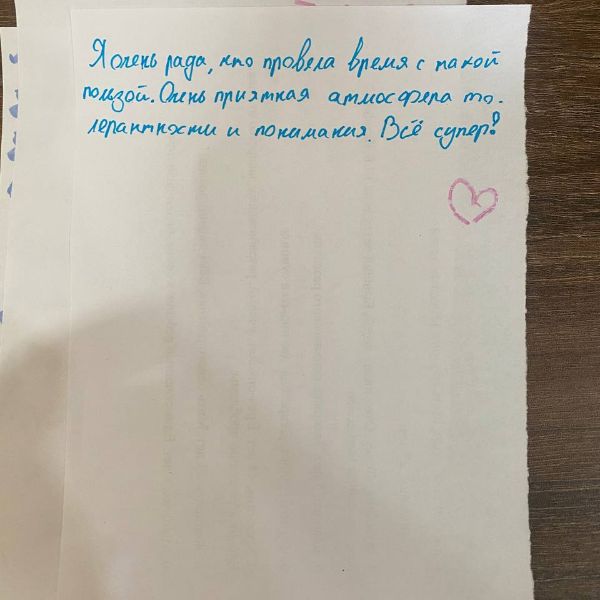 Я очень рада, что провела время с такой
пользой. Очень приятная атмосфера то-
лерантности и понимания. Всё супер!